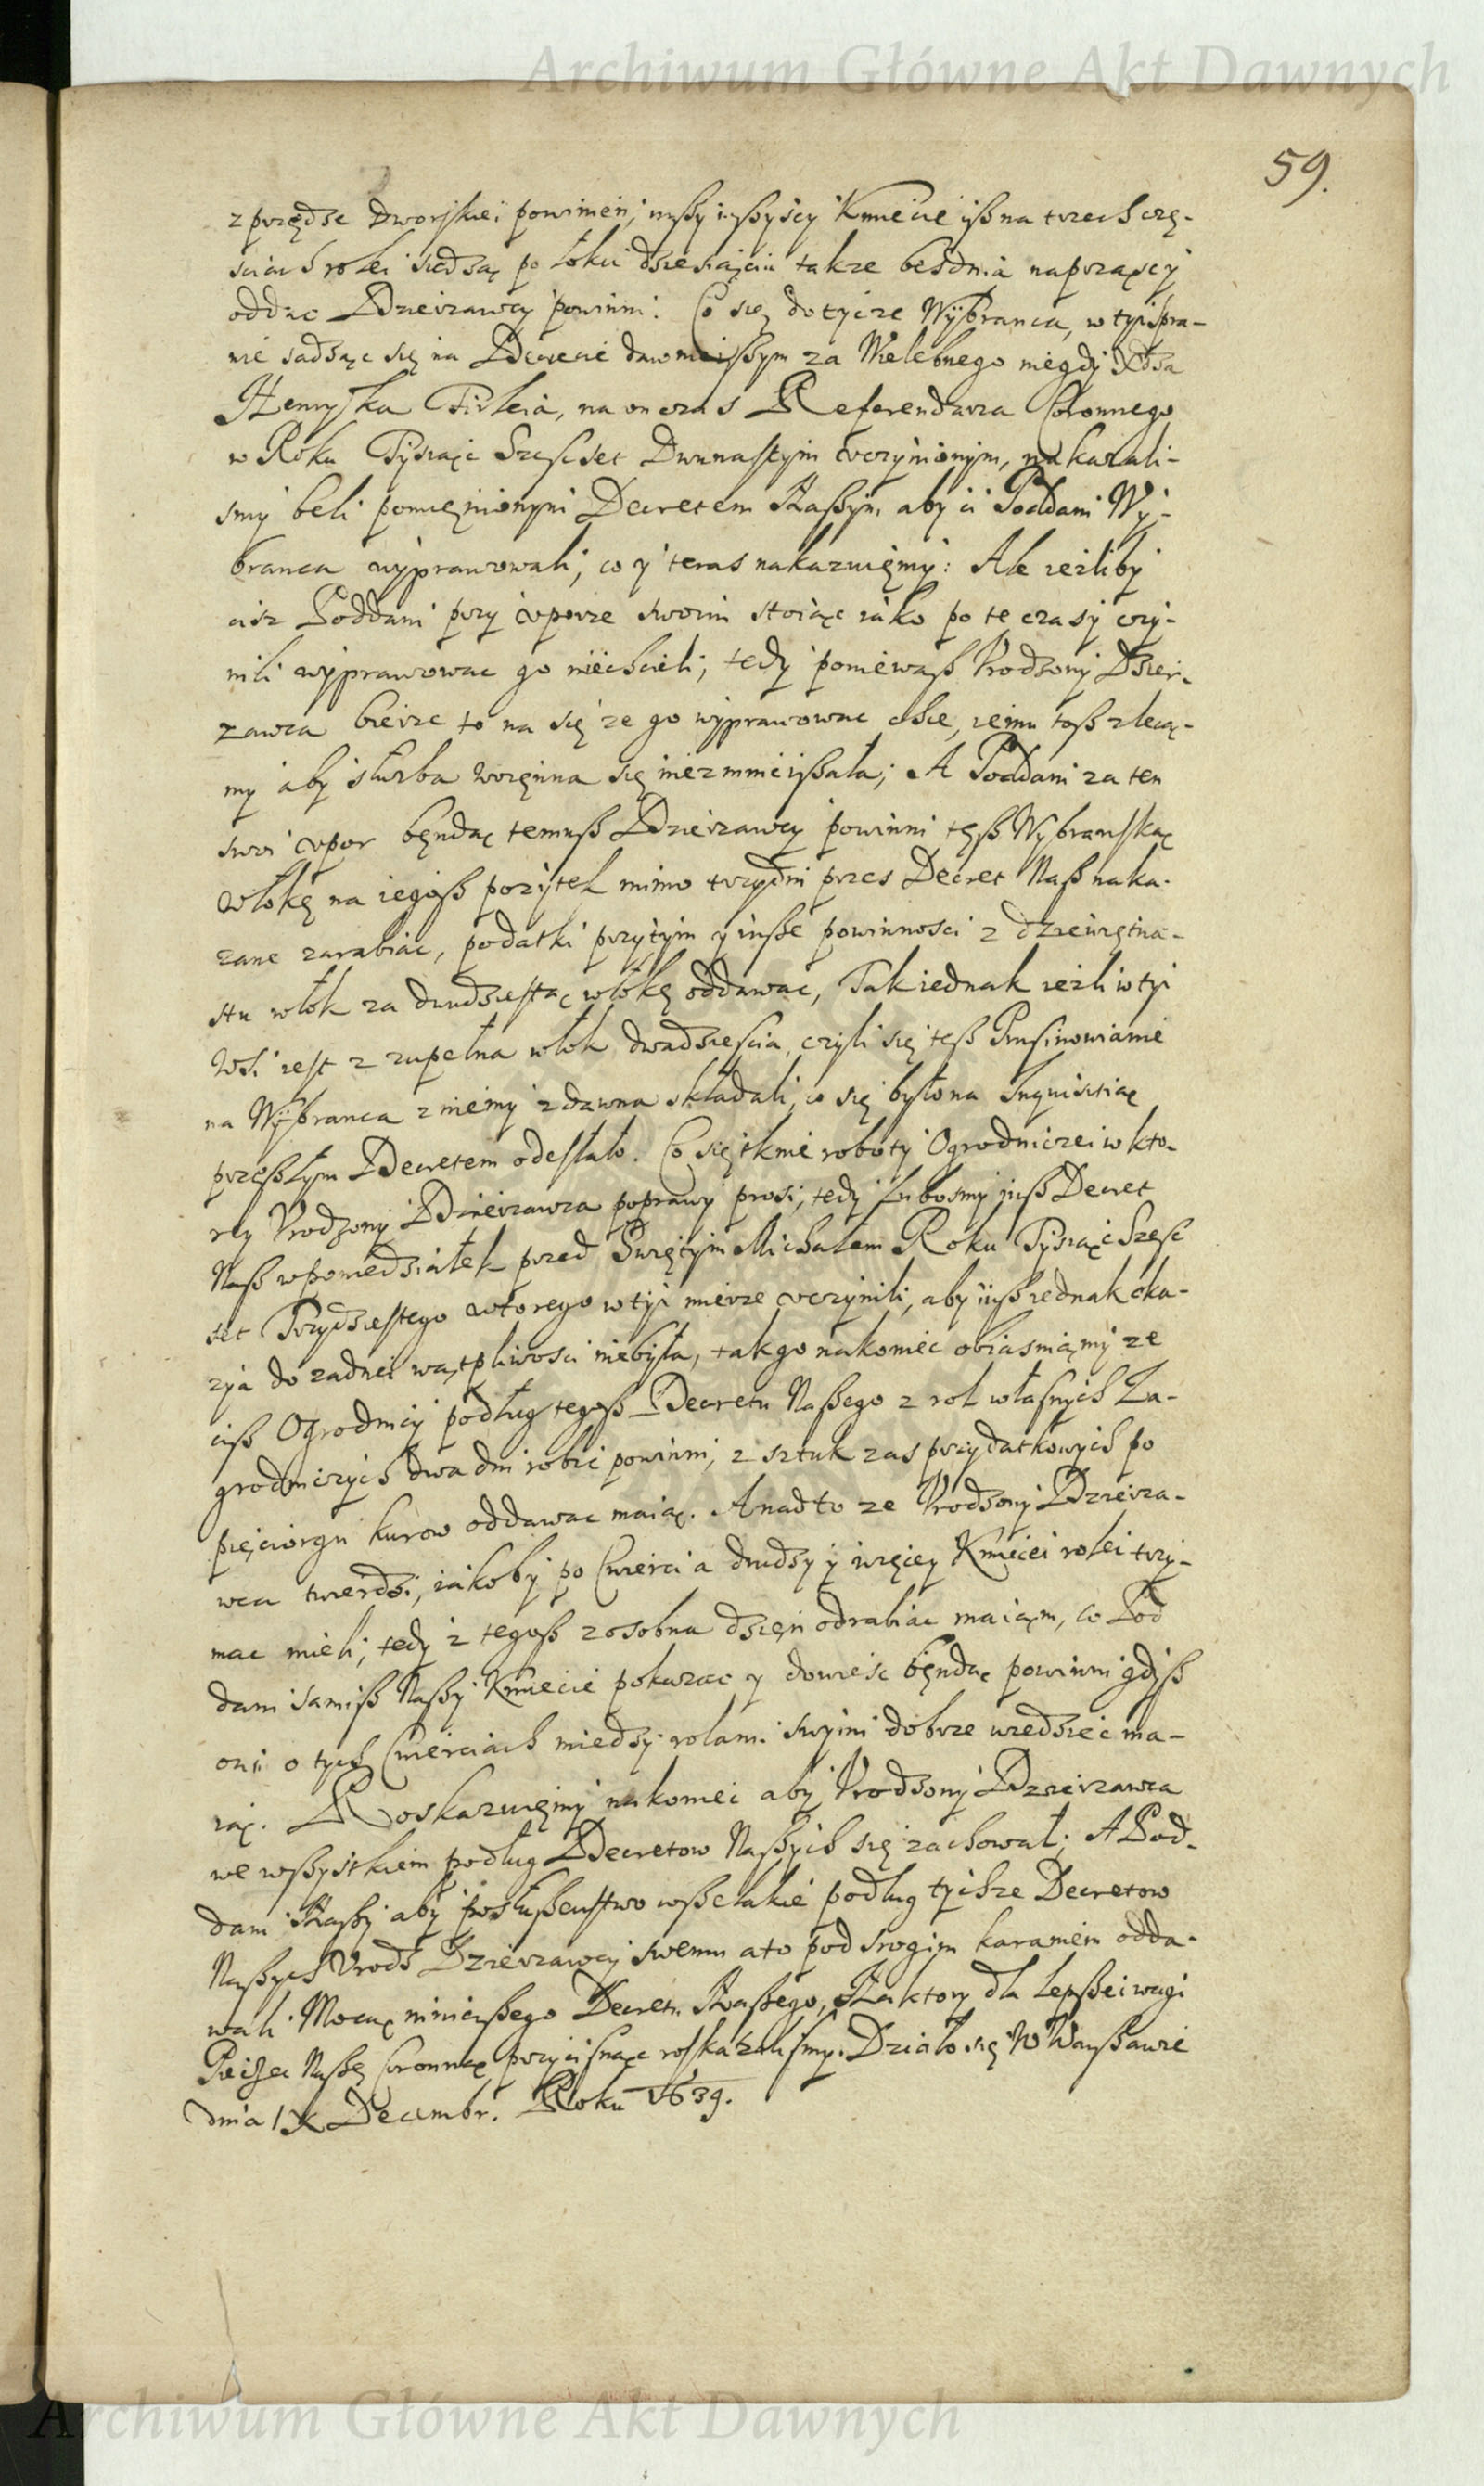 Archiwum Główne Akt Dawnych
59.
z przędze Dworskiei powinien, inszy wszyscy Kmiecie isz na trzech czę-
sciach rolei siedzą po łokci dziesiąciu także bezdnia naprząscy
oddac Dzierzawcy powinni. Co się dotycze Wybranca, w tyi spra-
wie sadząc się na Decrecie dawnieiszym za Wielebnego niegdy Xdza
Henryka Firleia, na on czas Referendarza Coronnego
w Roku Tysiąc Szescset Dwunastym vczynionym, nakazali-
smy beli pomienionym Decretem Naszym, aby ci Poddani Wy-
branca wyprawowali, co y teras nakazuięmy: Ale iezliby
cisz Poddani przy vporze swoim stoiąc iako po te czasy czy-
nili wyprawowac go niechcieli, tedy poniewasz Vrodzony Dzier-
zawca bierze to na się ze go wyprawowac chce, iemu tosz zlecą-
my aby słuzba woięnna się niezmnieiszała; A Poddani za ten
swoi vpor będą temusz Dzierzawcy powinni tęsz Wybranską
włokę na iegosz pozytek mimo trzydni przes Decret Nasz naka-
zane zarabiac, podatki przytym y insze powinnosci z dziewiętna-
stu włok za dwudziestą włokę oddawac, Tak iednak iezli w tyi
Wsi iest z zupełna włok dwadziescia, czyli się tesz Prusinowianie
na Wybranca z niemy zdawna składali, co się było na Inquisitią
przeszłym Decretem odesłało. Co się tknie roboty Ogrodniczei w kto-
rey Vrodzony Dzierzawca poprawy prosi, tedy lubosmy iusz Decret
Nasz w poniedziałek przed Swiętym Michałem Roku Tysiąc Szesc
set Trzydziestego wtorego w tyi mierze vczynili, aby iusz iednak oka-
zya do zadnei wątpliwosci niebyła, tak go nakoniec obiasniamy ze
cisz Ogrodnicy podług tegosz Decretu Naszego z rol własnych Za-
grodniczych dwa dni robic powinni, z sztuk zas przydatkowych po
pięciorgu kurow oddawac maią. A nadto ze Vrodzony Dzierza-
wca twierdzi, iakoby po Cwierci a drudzy y więcey Kmieciei rolei trzy-
mac mieli, tedy z tegosz zosobna dzięn odrabiac maiąm, co Pod
dani samisz Naszy Kmiecie pokazac y dowiesc będą powinni gdysz
oni o tych Cwierciach miedzy rolami swymi dobrze wiedziec ma-
ią. Roskazuięmy nakoniec aby Vrodzony Dzierzawca
we wszystkiem podług Decretow Naszych się zachował; A Pod-
dani Naszy aby posłuszenstwo wszelakie podług tychze Decretow
Naszych Vrodz Dzierzawcy swemu a to pod srogim karaniem odda-
wali. Mocą ninieyszego Decretu Naszego, Na ktory dla lepszei wagi
Pieczęc Naszę Coronną przycisnąc roskazalismy. Działo się w Warszawie
dnia IX Decembr. Roku 1639.
Archiwum Główne Akt Dawnych